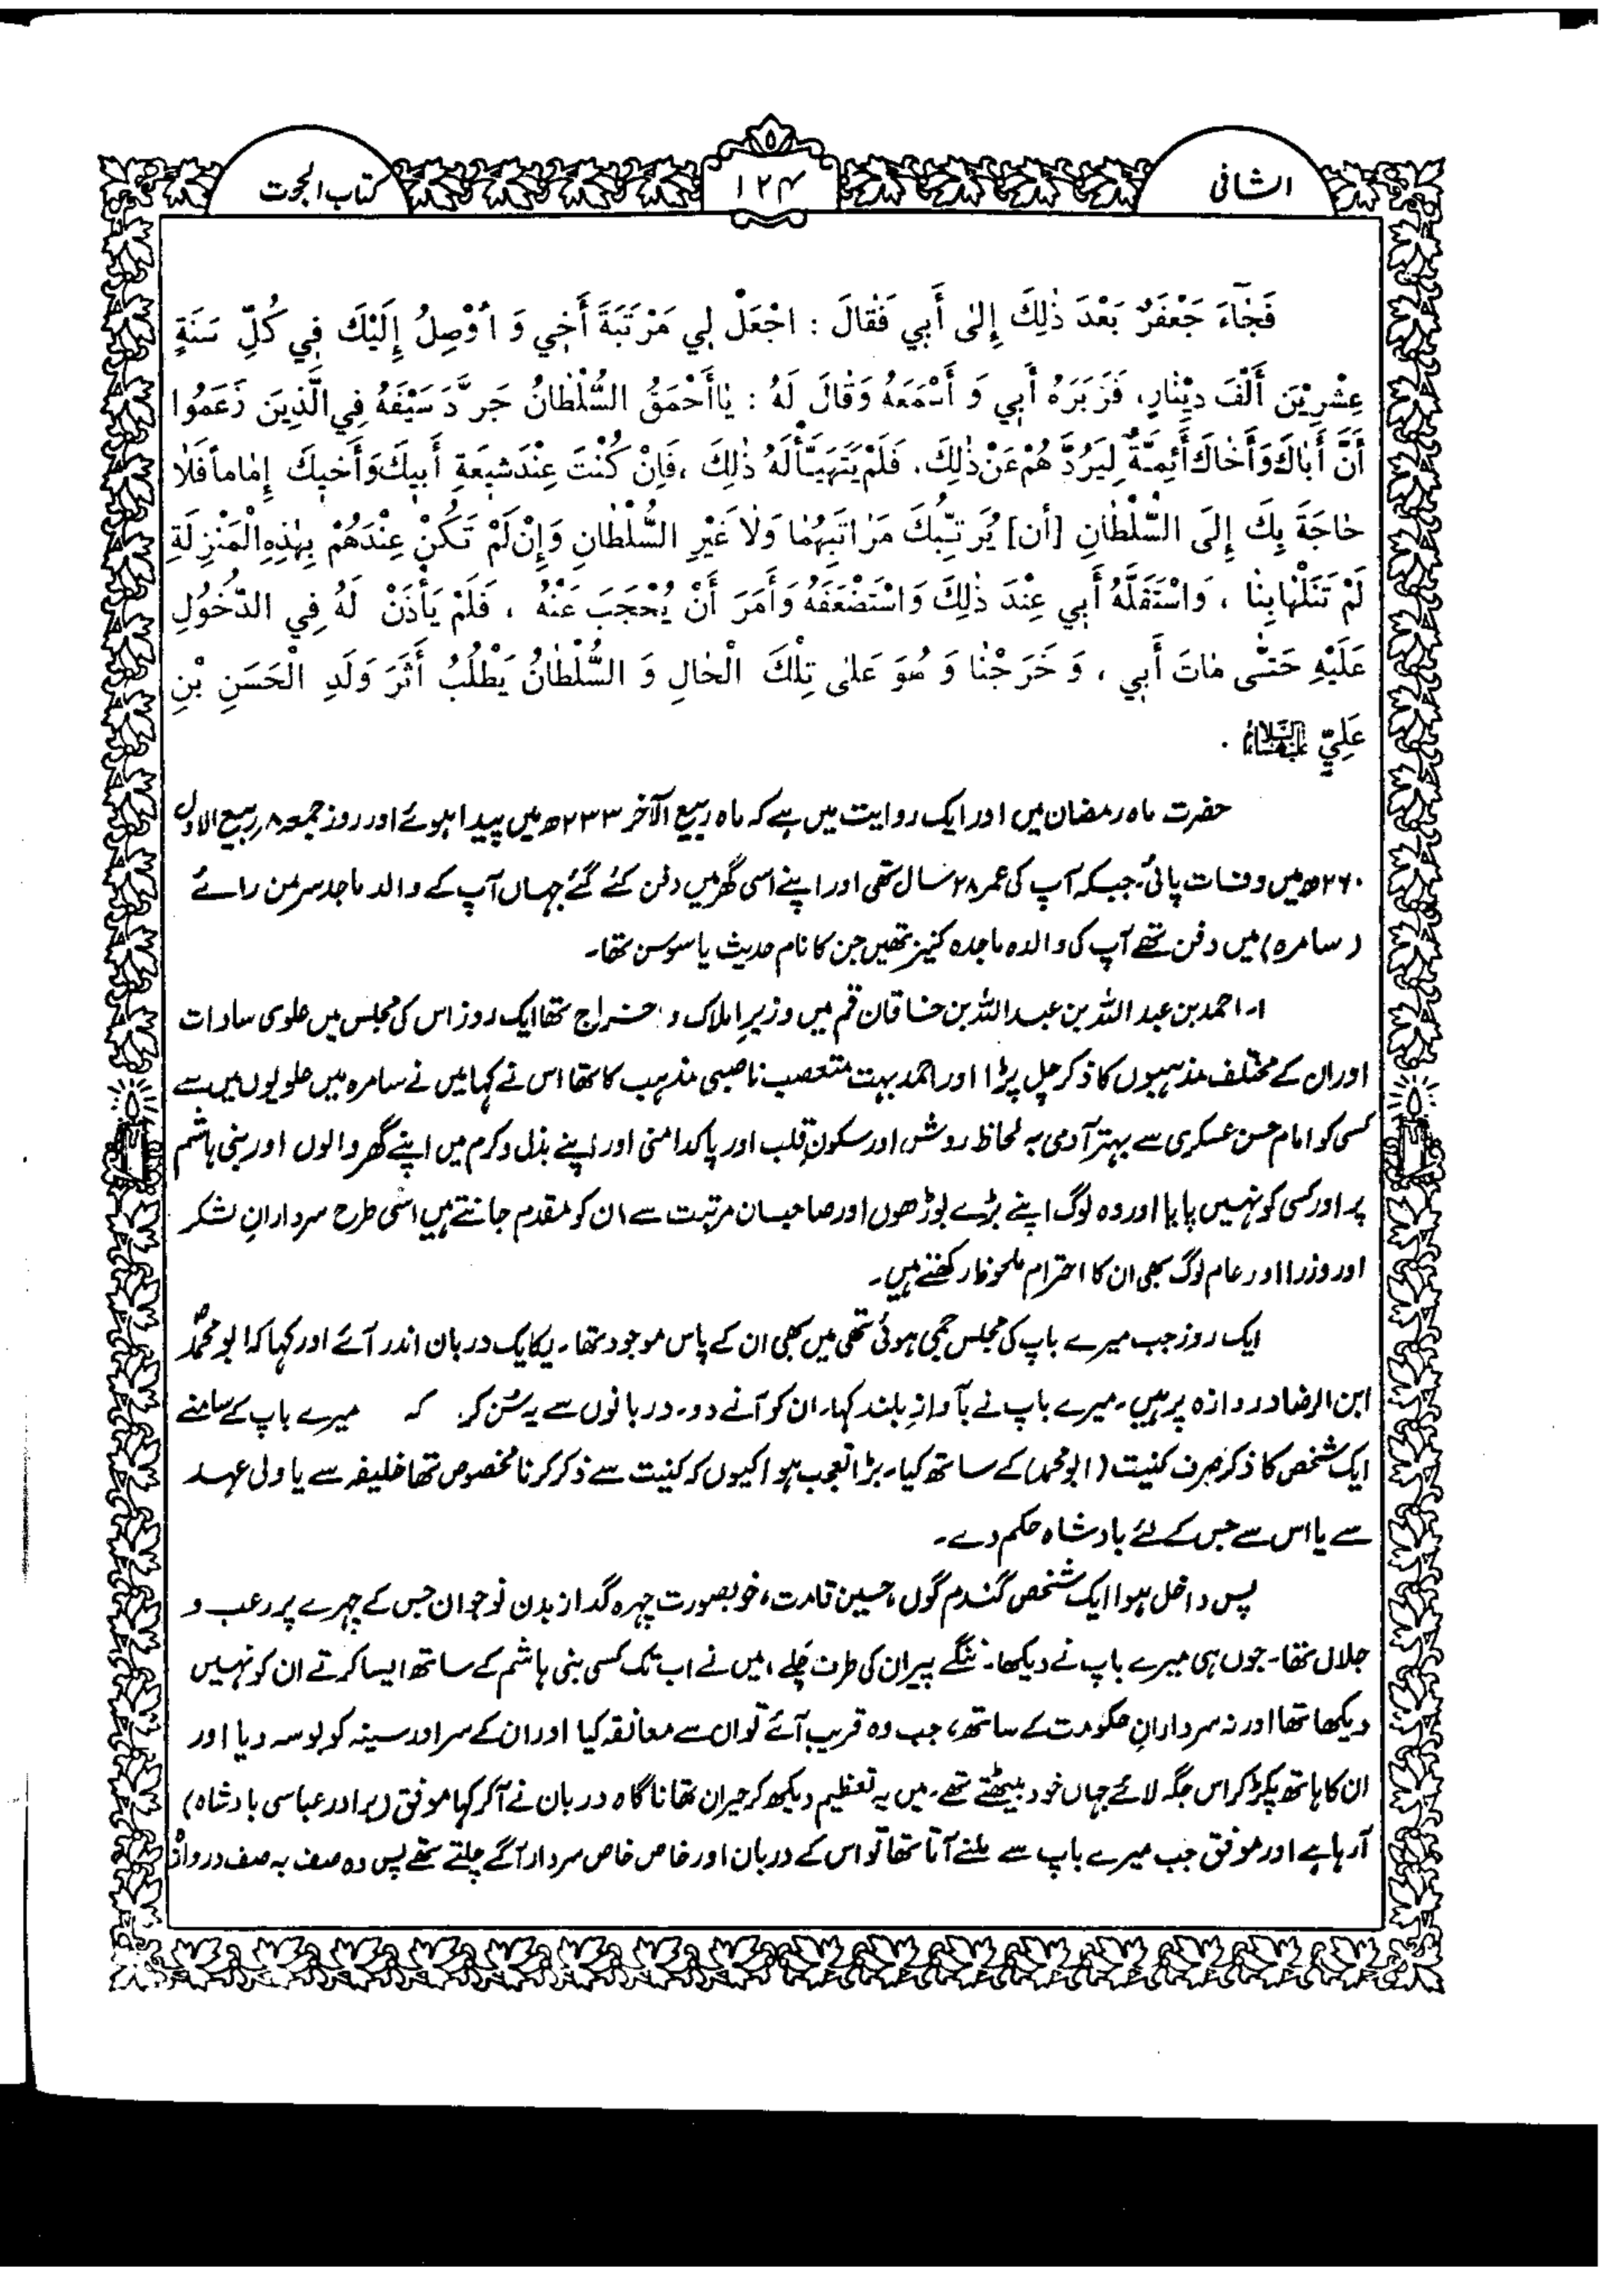 الشافی
۱۲۴
کتاب الحجت
فَجٰاءَ جَعْفَرٌ بَعْدَ ذٰلِكَ إِلىٰ أَبِي فَقٰالَ : اجْعَلْ لِي مَرْتَبَةَ أَخِي وَ اُوْصِلُ إِلَيْكَ فِي كُلِّ سَنَةٍ
عِشْرِيْنَ أَلْفَ دِيْنٰارٍ، فَزَبَرَهُ أَبِي وَ أَسْمَعَهُ وَقٰالَ لَهُ : يٰاأَحْمَقُ السُّلْطٰانُ جَرَّدَ سَيْفَهُ فِي الَّذِينَ زَعَمُوا
أَنَّ أَبٰاكَ وَأَخٰاكَ أَئِمَّةٌ لِيَرُدَّ هُمْ عَنْ ذٰلِكَ، فَلَمْ يَتَهَيَّأْ لَهُ ذٰلِكَ ، فَإِنْ كُنْتَ عِنْدَ شِيعَةِ أَبِيكَ وَأَخِيكَ إِمٰاماً فَلٰا
حٰاجَةَ بِكَ إِلَى السُّلْطٰانِ [أن] يُرَتِّبَكَ مَرٰاتِبَهُمٰا وَلٰا غَيْرِ السُّلْطٰانِ وَإِنْ لَمْ تَكُنْ عِنْدَهُمْ بِهٰذِهِ الْمَنْزِلَةِ
لَمْ تَنَلْهٰا بِنٰا ، وَاسْتَقَلَّهُ أَبِي عِنْدَ ذٰلِكَ وَاسْتَضْعَفَهُ وَأَمَرَ أَنْ يُحْجَبَ عَنْهُ ، فَلَمْ يَأْذَنْ لَهُ فِي الدُّخُولِ
عَلَيْهِ حَتّٰى مٰاتَ أَبِي ، وَ خَرَجْنٰا وَ هُوَ عَلىٰ تِلْكَ الْحٰالِ وَ السُّلْطٰانُ يَطْلُبُ أَثَرَ وَلَدِ الْحَسَنِ بْنِ
عَلِيٍّ .
حضرت ماہ رمضان میں اور ایک روایت میں ہے کہ ماہ ربیع الآخر ۲۳۳ھ میں پیدا ہوئے اور روز جمعہ ۸ ربیع الاول
۲۶۰ھ میں وفات پائی۔ جبکہ آپ کی عمر ۲۸ سال تھی اور اپنے اسی گھر میں دفن کئے گئے جہاں آپ کے والد ماجد سرمن رائے
(سامرہ) میں دفن تھے آپ کی والدہ ماجدہ کنیز تھیں جن کا نام حدیث یا سوسن تھا۔
۱۔ احمد بن عبد اللہ بن عبد اللہ بن خاقان قم میں وزیر املاک و خراج تھا ایک روز اس کی مجلس میں علوی سادات
اور ان کے مختلف مذہبوں کا ذکر چل پڑا اور احمد بہت متعصب ناصبی مذہب کا تھا اس نے کہا میں نے سامرہ میں علویوں میں سے
کسی کو امام حسن عسکری سے بہتر آدمی بہ لحاظ روش اور سکونِ قلب اور پاکدامنی اور اپنے بذل و کرم میں اپنے گھر والوں اور بنی ہاشم
پر اور کسی کو نہیں پایا اور وہ لوگ اپنے بڑے بوڑھوں اور صاحبان مرتبت سے ان کو مقدم جانتے ہیں اسی طرح سردارانِ لشکر
اور وزرا اور عام لوگ بھی ان کا احترام ملحوظ رکھتے ہیں۔
ایک روز جب میرے باپ کی مجلس جمی ہوئی تھی میں بھی ان کے پاس موجود تھا۔ یکایک دربان اندر آئے اور کہا کہ ابو محمدؑ
ابن الرضا دروازہ پر ہیں۔ میرے باپ نے بآوازِ بلند کہا۔ ان کو آنے دو۔ دربانوں سے یہ سُن کر کہ میرے باپ کے سامنے
ایک شخص کا ذکر صرف کنیت (ابو محمد) کے ساتھ کیا۔ بڑا تعجب ہوا کیوں کہ کنیت سے ذکر کرنا مخصوص تھا خلیفہ سے یا ولی عہد
سے یا اس سے جس کے لئے بادشاہ حکم دے۔
پس داخل ہوا ایک شخص گندم گوں، حسین قامت، خوبصورت چہرہ گداز بدن نوجوان جس کے چہرے پر رعب و
جلال تھا۔ جوں ہی میرے باپ نے دیکھا۔ ننگے پیر ان کی طرف چلے، میں نے اب تک کسی بنی ہاشم کے ساتھ ایسا کرتے ان کو نہیں
دیکھا تھا اور نہ سردارانِ حکومت کے ساتھ، جب وہ قریب آئے تو ان سے معانقہ کیا اور ان کے سر اور سینہ کو بوسہ دیا اور
ان کا ہاتھ پکڑ کر اس جگہ لائے جہاں خود بیٹھتے تھے۔ میں یہ تعظیم دیکھ کر حیران تھا ناگاہ دربان نے آکر کہا موفق (برادر عباسی بادشاہ)
آرہا ہے اور موفق جب میرے باپ سے ملنے آتا تھا تو اس کے دربان اور خاص خاص سردار آگے چلتے تھے پس وہ صف بہ صف دروازہ